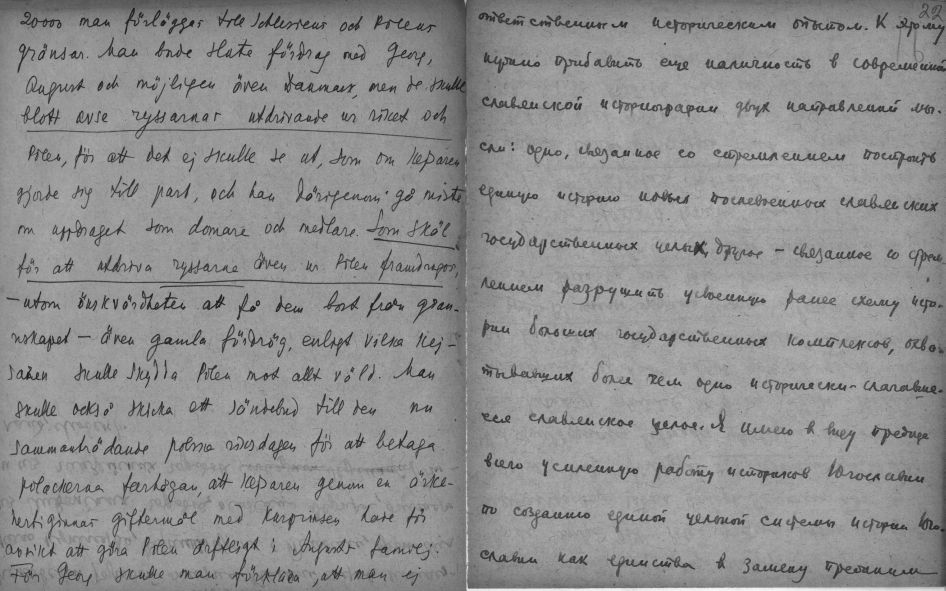 20000 man förläggas till Schlesiens och Polens
gränsar. Man borde sluta fördrag med Georg,
August och möjligen även Danmark, men de skulle
blott avse ryssarnas utdrivande ur riket och
Polen, för att det ej skulle se ut, som om kejsaren
gjorde sig till part, och han därigenom gå miste
om uppdraget som domare och medlare. Som skäl
för att utdriva ryssarna även ur Polen framdrogos,
– utom önskvärdheten att få dem bort från gran-
nskapet – även gamla fördrag, enligt vilka kej-
saren skulle skydda Polen mot allt våld. Man
skulle också skicka ett sändebud till den nu
sammanträdande polska riksdagen för att betaga
polackerna farhågan, att kejsaren genom en ärke-
hertiginnas giftermål med Kurprinsen hade för
avsikt att göra Polen ärftligt i Augusts familj.
För Georg skulle man förklara, att man ej
22
ответственным историческим опытом. К этому
нужно прибавить еще наличность в современной
славянской историографии двух направлений мы-
сли: одно, связанное со стремлением построить
единую историю новых послевоенных славянских
государственных целых, другое – связанное со стрем-
лением разрушить усвоенную ранее схему исто-
рии больших государственных комплексов, охва-
тывавших более чем одно исторически-слагавше-
еся славянское целое. Я имею в виду прежде
всего усиленную работу историков Югославии
по созданию единой цельной системы истории Юго-
славии как единства в замену прежним